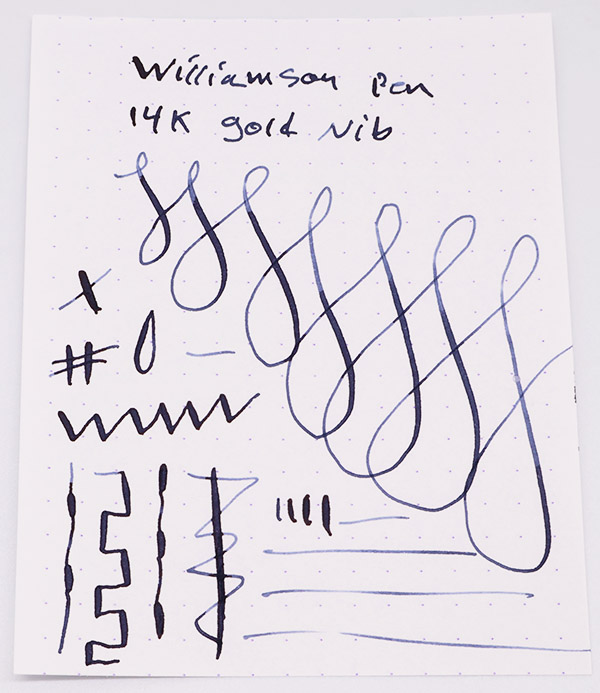 Williamson Pen
14K gold Nib